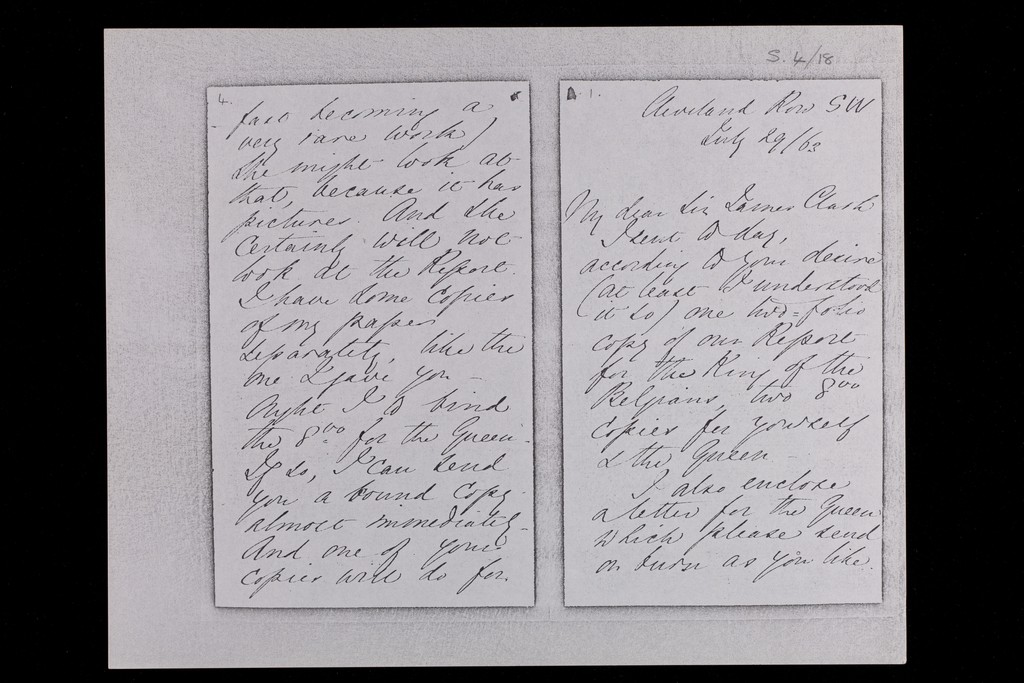 S. 4/18
4.
fast becoming a
very rare work)
She might look at
that, because it has
pictures. And she
certainly will not
look at the Report.
I have some copies
of my paper
separately, like the
one I gave you -
Ought I to bind
the 8vo for the Queen -
If so, I can send
you a bound copy
almost immediately -
And one of your
copies will do for
1.
Cleveland Row SW
July 29/63
My dear Sir James Clark
I sent to day,
according to your desire
(at least I understood
it so) one two-folio
copy of our Report
for the King of the
Belgians, two 8vo
copies for yourself
& the Queen -
I also enclose
a letter for the Queen
which please send
or burn as you like.